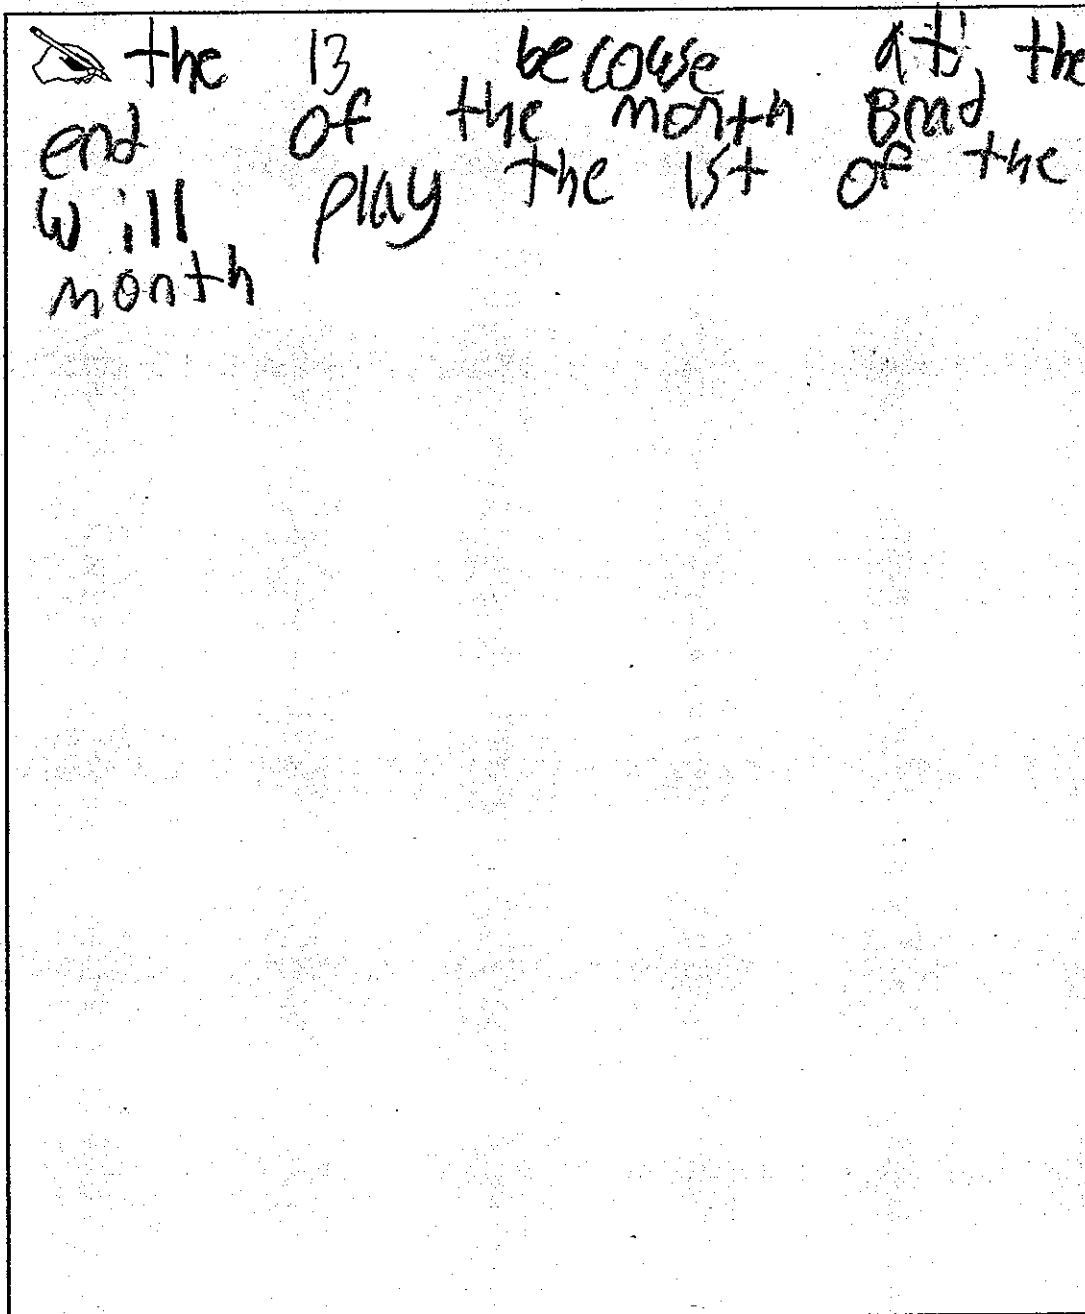 the 13 becouse at the
end of the month Brad
will play the 1st of the
month